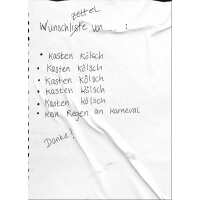 zettel
Wunschliste von
• Kasten Kölsch
• Kasten Kölsch
• Kasten Kölsch
• Kasten Kölsch
• Kasten Kölsch
• Kein Regen an Karneval
Danke!